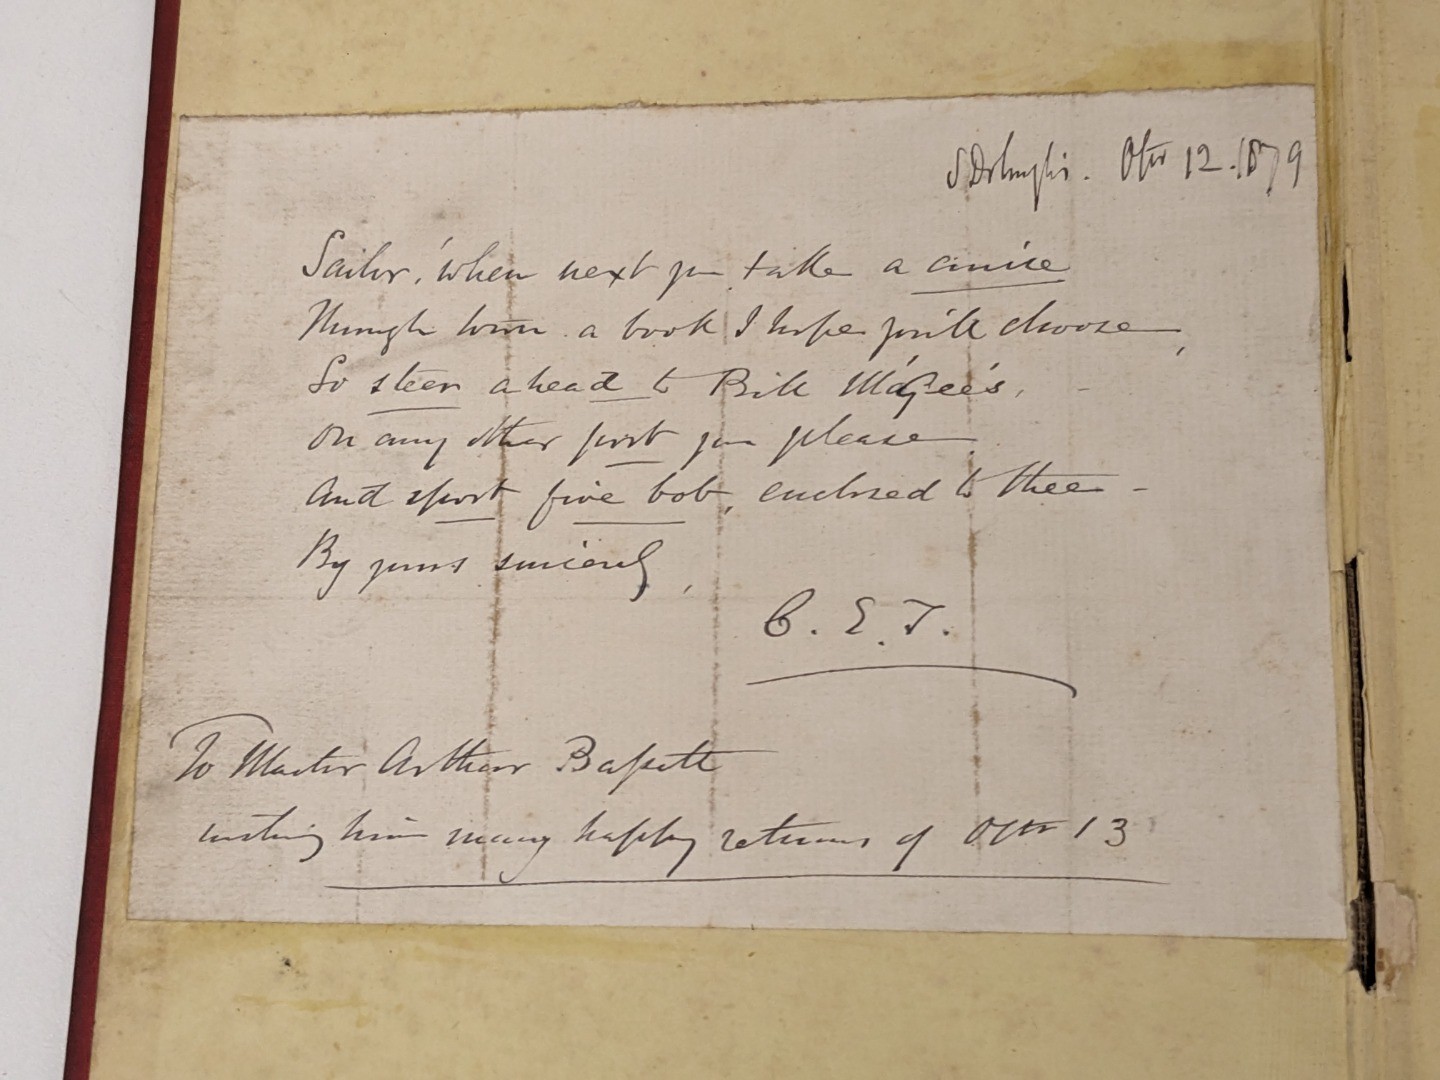 S. Doloughs. Octr 12. 1879
Sailor, when next you take a cruise
Through town a book I hope you'll choose,
So steer ahead to Bill McGee's,
Or any other port you please
And sport five bob, enclosed to thee -
By yours sincerely,
C. E. T.
To Master Arthur Bassett
wishing him many happy returns of Octr 13